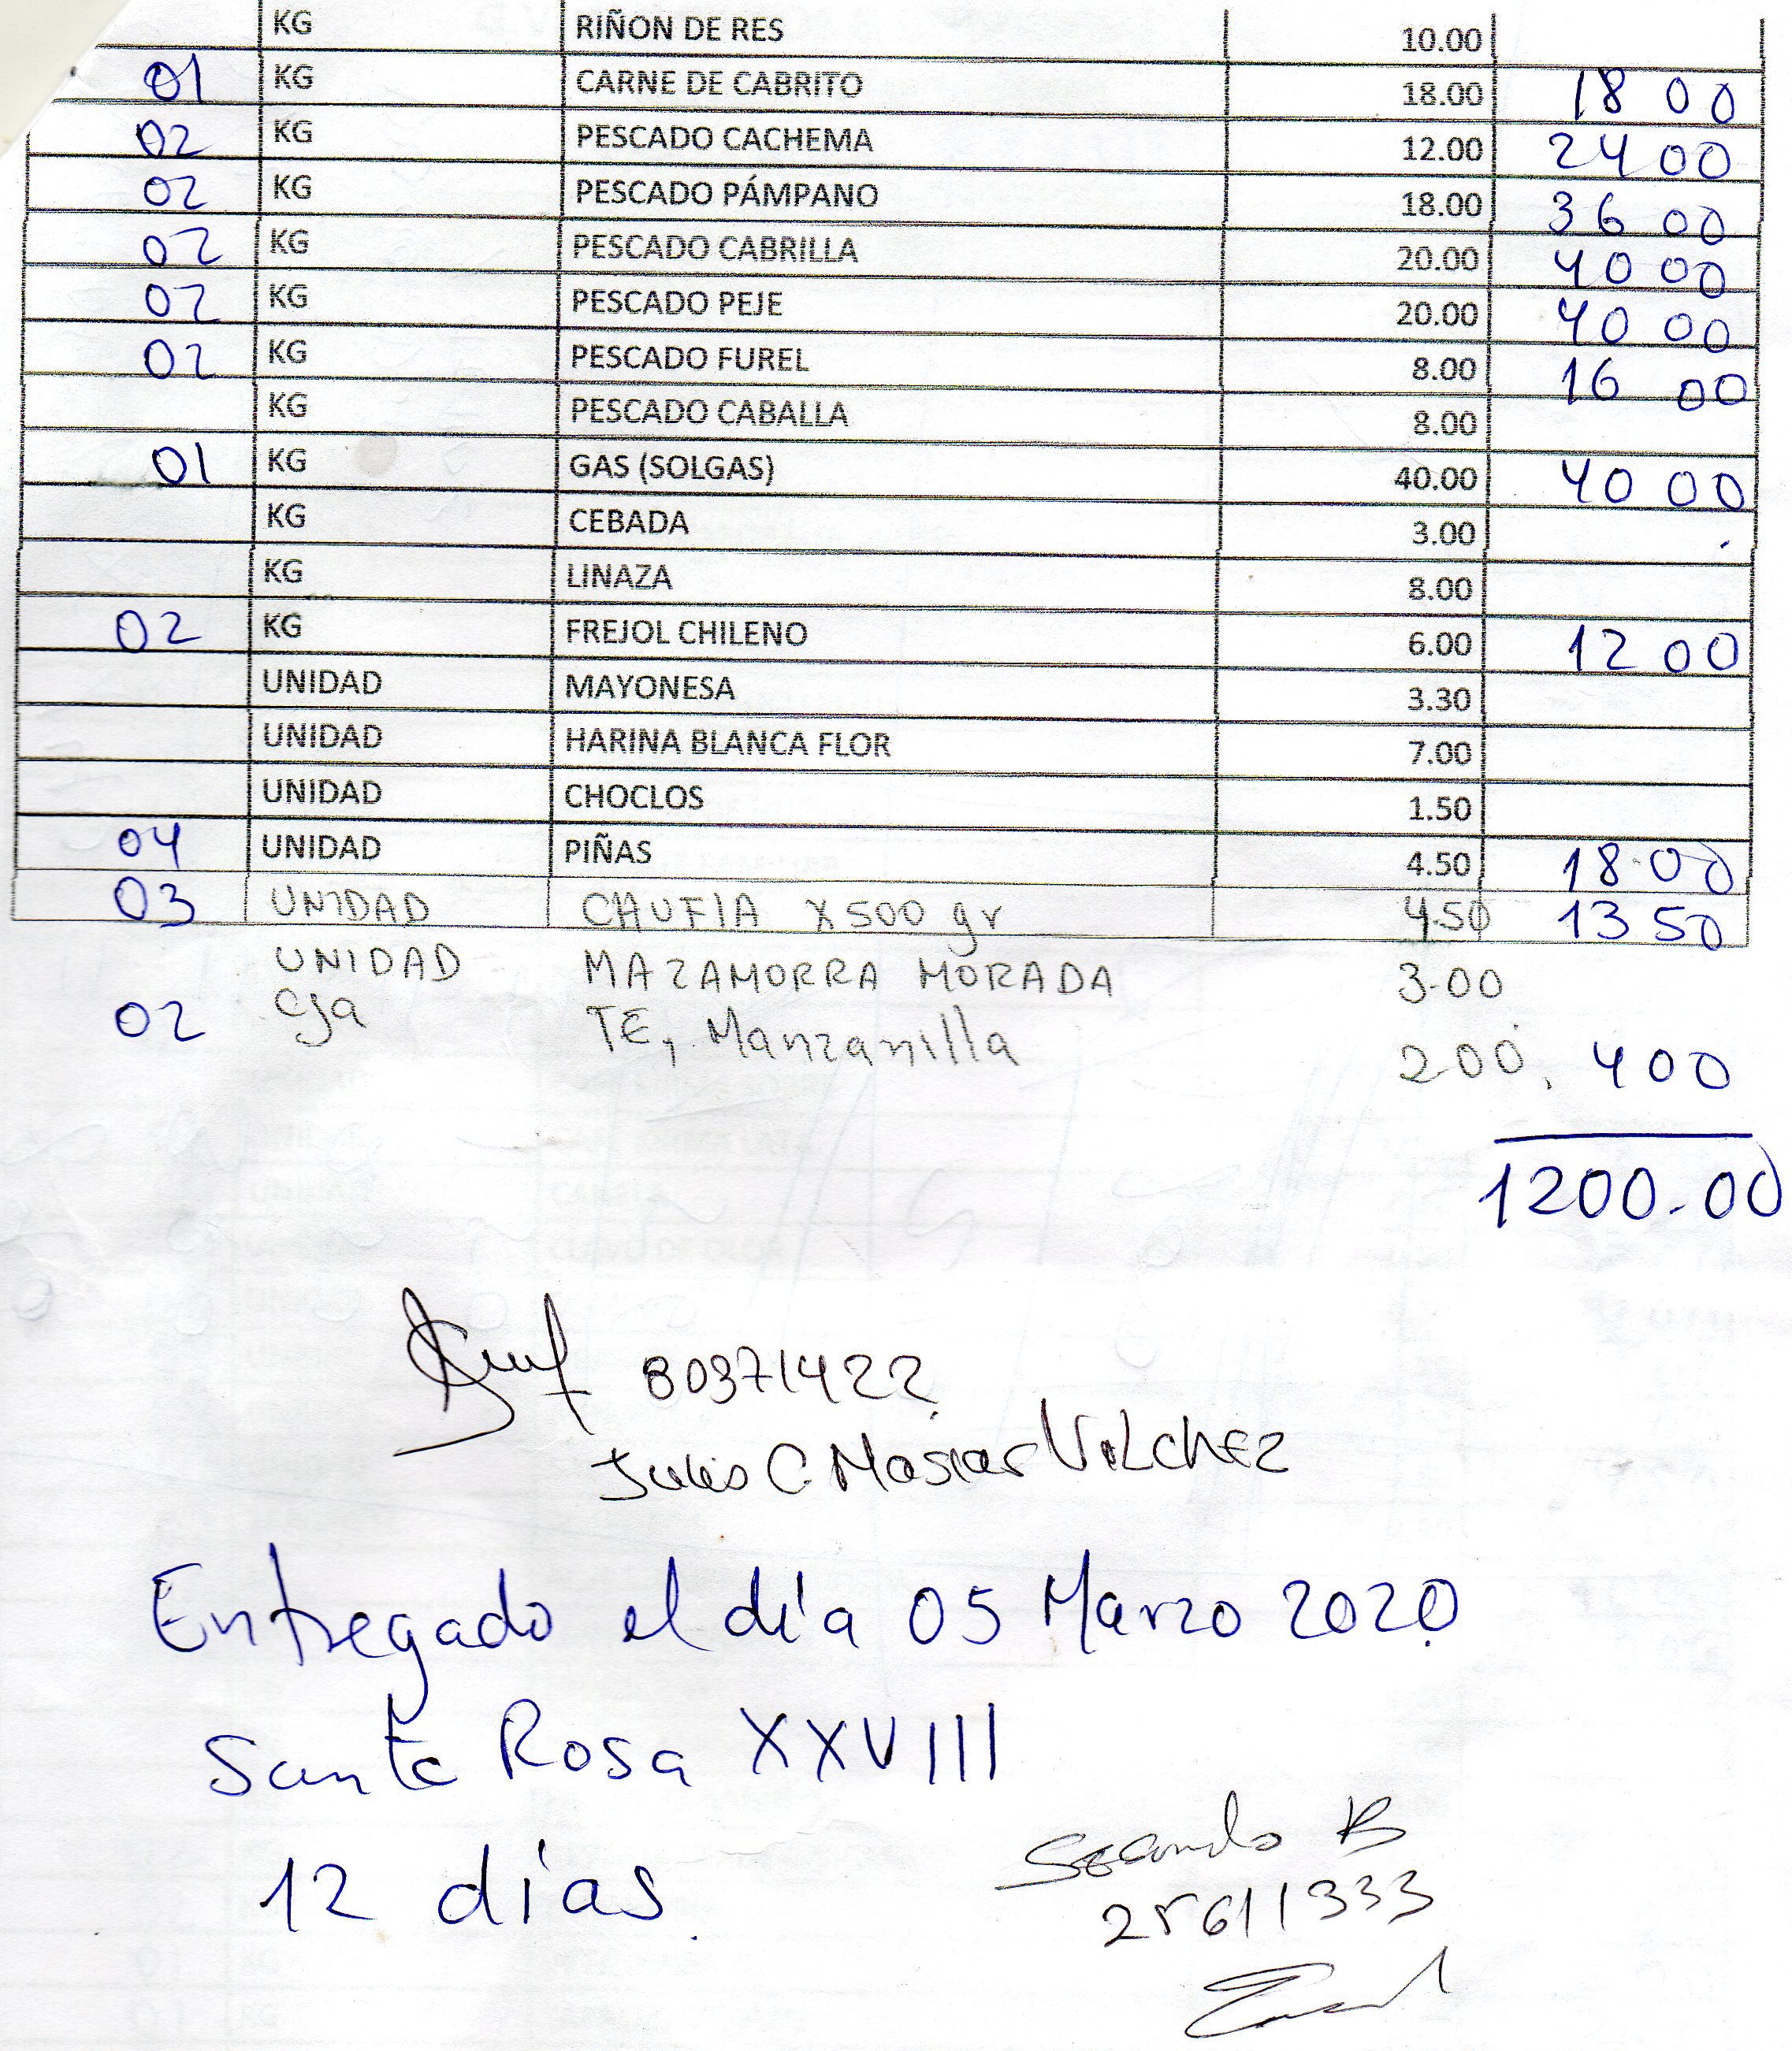 KG RIÑON DE RES 10.00
01 KG CARNE DE CABRITO 18.00 18 00
02 KG PESCADO CACHEMA 12.00 24 00
02 KG PESCADO PÁMPANO 18.00 36 00
02 KG PESCADO CABRILLA 20.00 40 00
02 KG PESCADO PEJE 20.00 40 00
02 KG PESCADO FUREL 8.00 16 00
KG PESCADO CABALLA 8.00
01 KG GAS (SOLGAS) 40.00 40 00
KG CEBADA 3.00
KG LINAZA 8.00
02 KG FREJOL CHILENO 6.00 12 00
UNIDAD MAYONESA 3.30
UNIDAD HARINA BLANCA FLOR 7.00
UNIDAD CHOCLOS 1.50
04 UNIDAD PIÑAS 4.50 18.00
03 UNIDAD CHUFIA X 500 gr 4.50 13 50
UNIDAD MAZAMORRA MORADA 3.00
02 cja TE, Manzanilla 2.00 4 00
1200.00
80371422
Julio C. Vilchez
Entregado el día 05 Marzo 2020
Santa Rosa XXVIII
12 días.
B
25611333